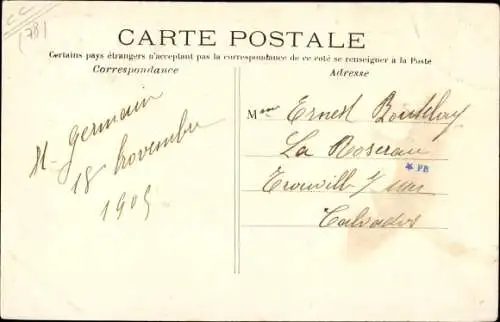 CC
(78)
CARTE POSTALE
Certains pays étrangers n'acceptant pas la correspondance de ce coté se renseigner à la Poste
Correspondance
Adresse
St Germain
18 novembre
1905
Mme Ernest
La Roseraie
* PB
Trouville s/ mer
Calvados